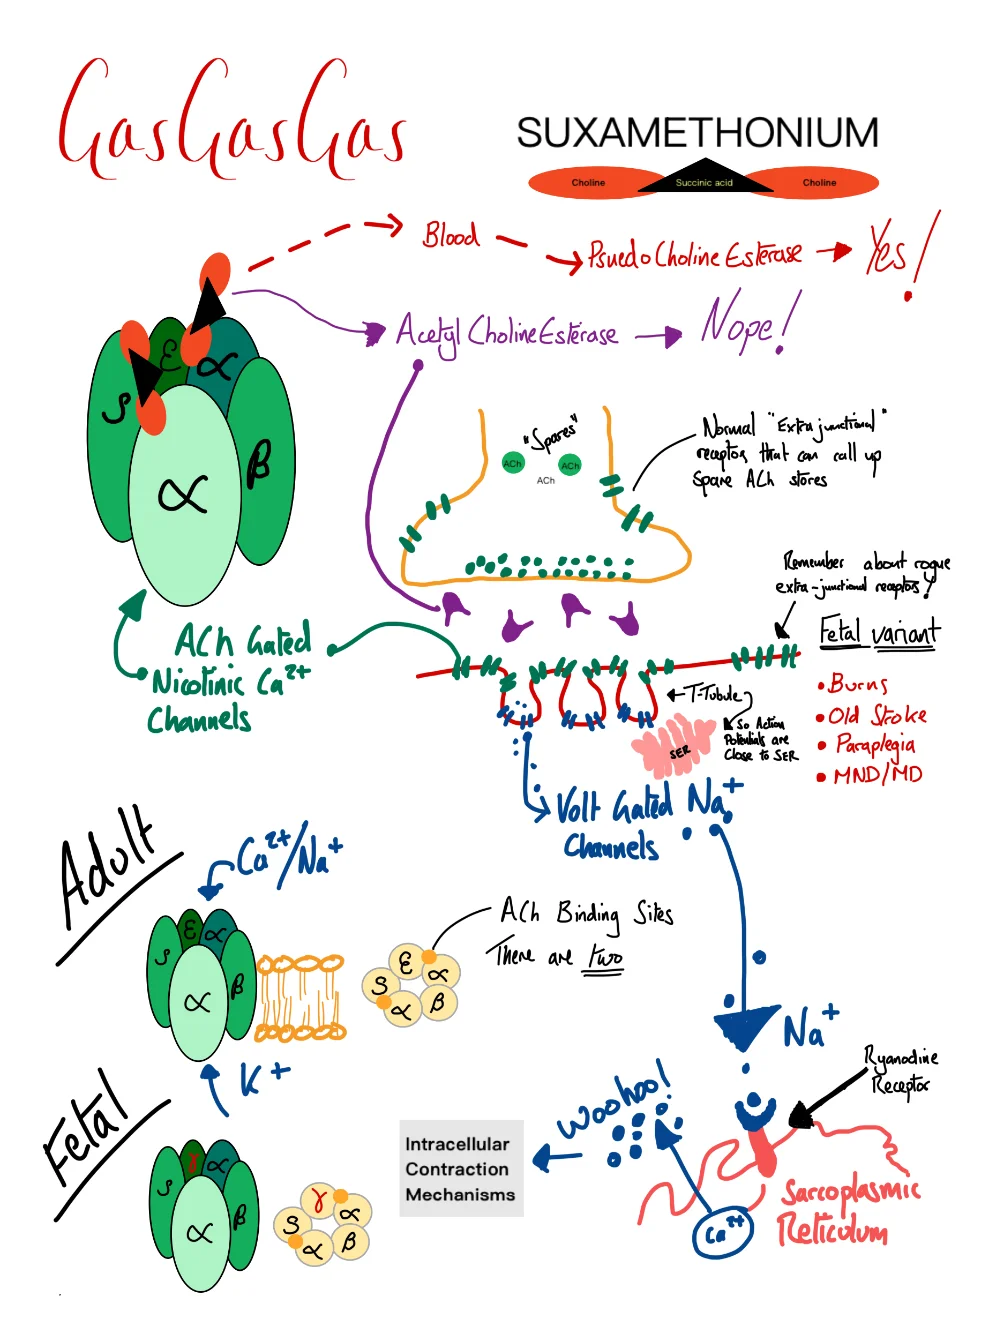 GasGasGas
SUXAMETHONIUM
Choline
Succinic acid
Choline
Blood
Psuedo Choline Esterase
Yes!
Acetyl Choline Esterase
Nope!
ε
α
δ
β
α
"Spares"
ACh
ACh
ACh
Normal "Extrajunctional"
receptors that can call up
spare ACh stores
Remember about rogue
extra-junctional receptors!
Fetal variant
• Burns
• Old Stroke
• Paraplegia
• MND/MD
ACh Gated
Nicotinic Ca2+
Channels
T-Tubule
So Action
Potentials are
Close to SER
SER
Volt Gated Na+
Channels
Adult
Ca2+/Na+
δ
ε
α
α
β
K+
ACh Binding Sites
There are two
ε
α
β
α
δ
Na+
Ryanodine
Receptor
Woohoo!
Intracellular
Contraction
Mechanisms
Ca2+
Sarcoplasmic
Reticulum
Fetal
δ
γ
α
α
β
γ
α
β
α
δ